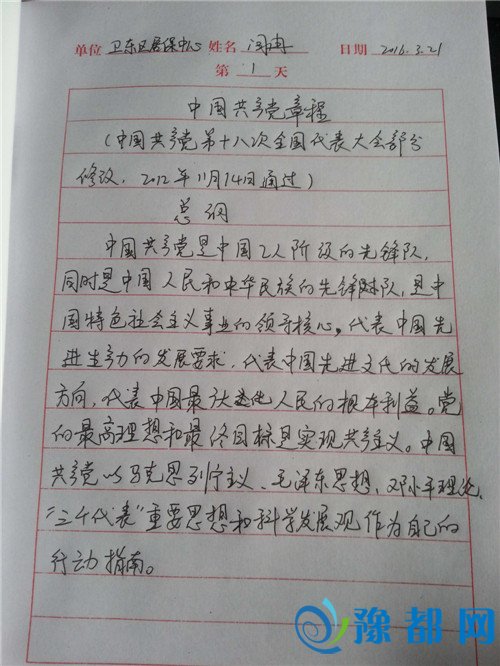 单位 卫东区医保中心 姓名 闫冉 日期 2016.3.21
第 1 天
中国共产党章程
(中国共产党第十八次全国代表大会部分
修改，2012年11月14日通过)
总纲
中国共产党是中国工人阶级的先锋队，
同时是中国人民和中华民族的先锋队，是中
国特色社会主义事业的领导核心，代表中国先
进生产力的发展要求，代表中国先进文化的发展
方向，代表中国最广大人民的根本利益。党
的最高理想和最终目标是实现共产主义。中国
共产党以马克思列宁主义、毛泽东思想、邓小平理论、
"三个代表"重要思想和科学发展观作为自己的
行动指南。
豫都网